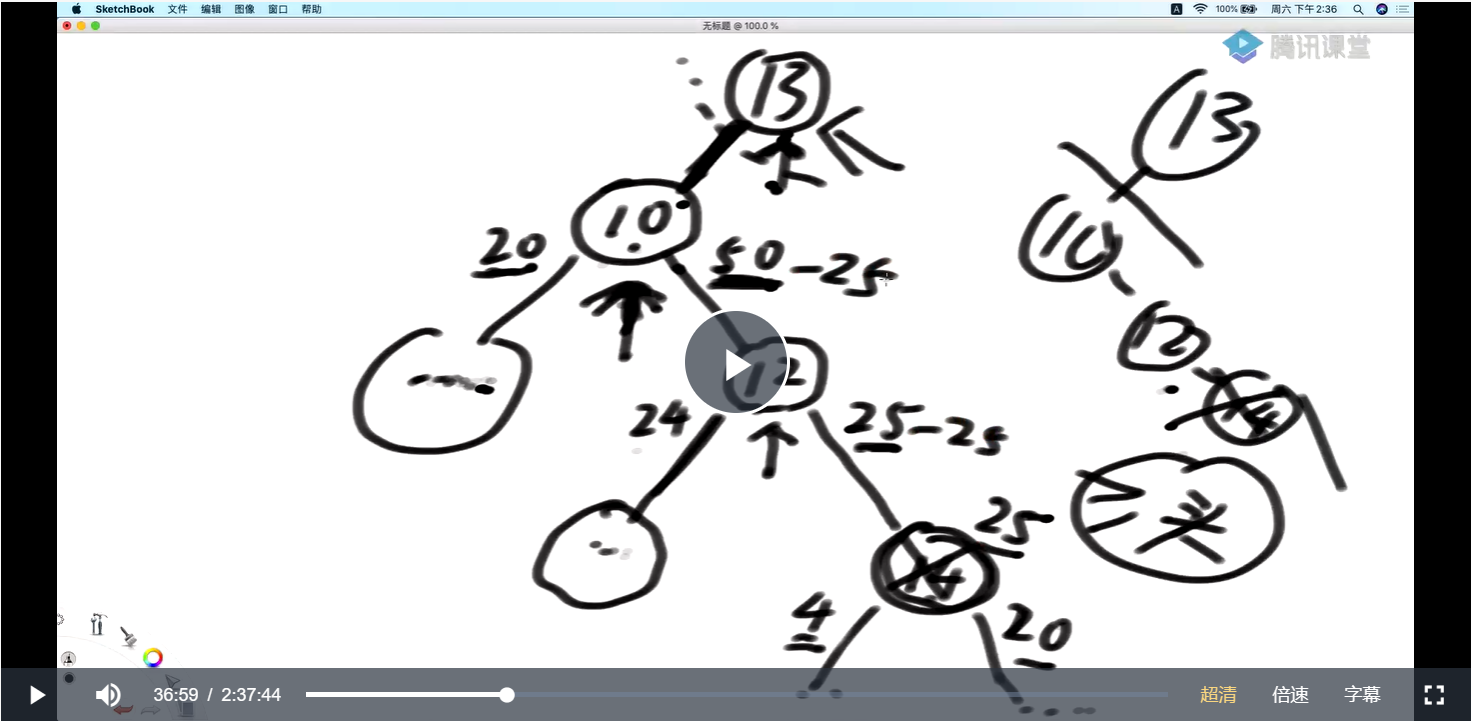 SketchBook 文件 编辑 图像 窗口 帮助 A 100% 周六 下午2:36
无标题 @ 100.0 %
腾讯课堂
13
13
10
20
50-25
12
24
25-25
25
4
20
36:59 / 2:37:44 超清 倍速 字幕